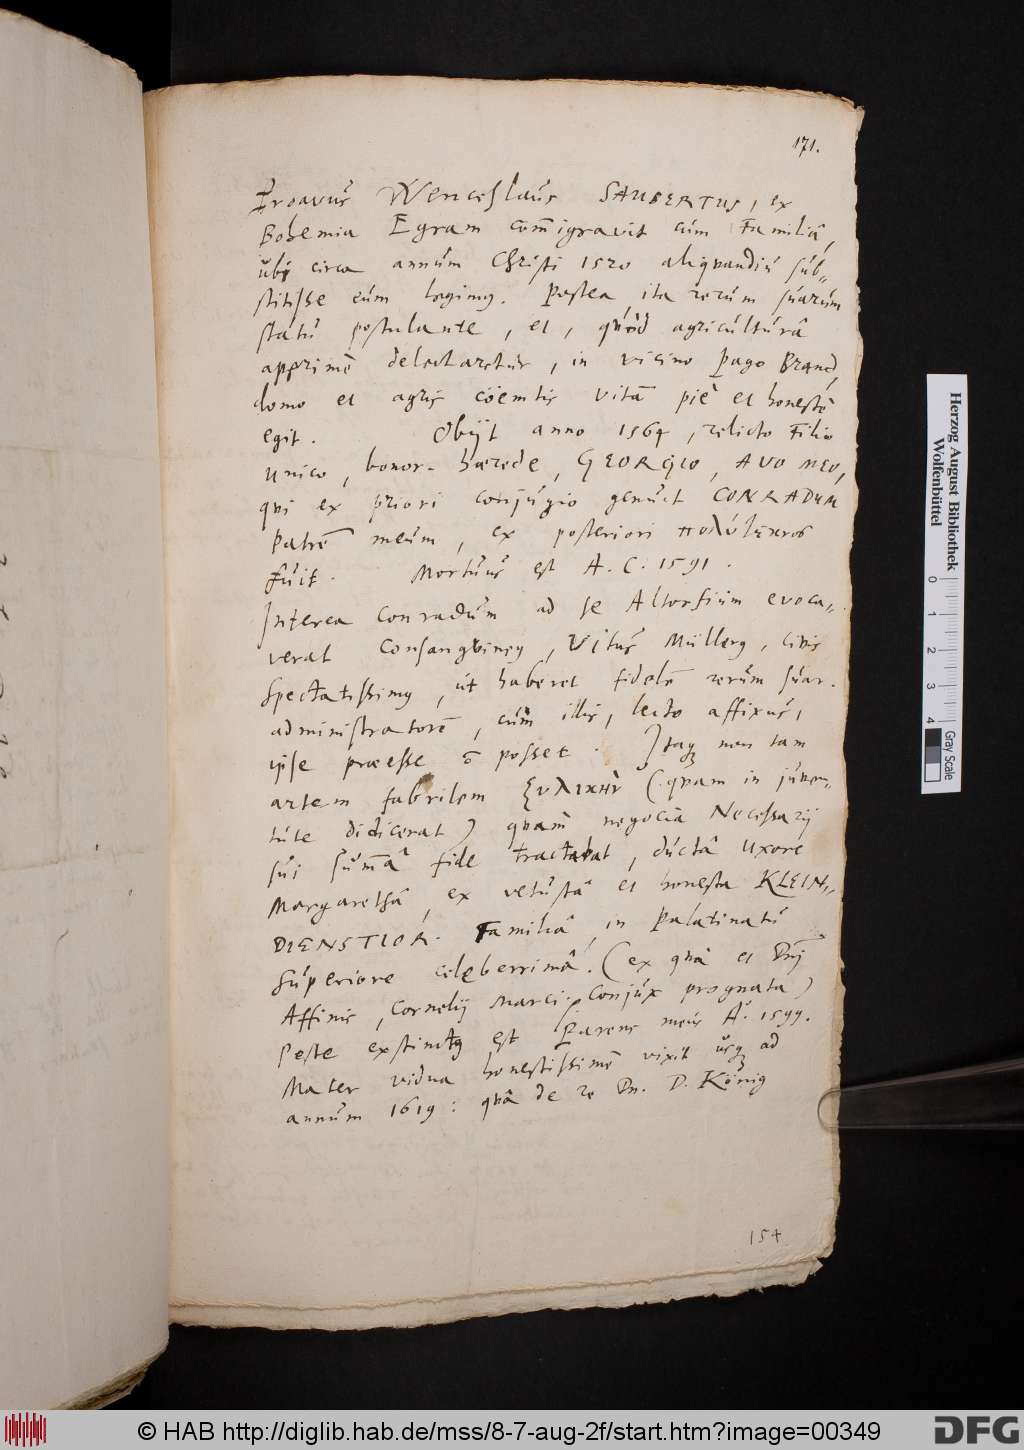 171.
Proavus Wenceslaus SAUBERTUS, ex
Bohemia Egram com̄igravit cum Familiâ,
ubi circa annum Christi 1520 aliquandiu sub-
stitisse eum legimus. Postea ita rerum suarum
statu postulante, et, quòd agriculturâ
apprimè delectaretur, in vicino pago Brand,
domo et agris coëmtis vitā piè et honestè
egit. Obijt anno 1564, relicto Filio
unico, bonor. hærede, GEORGIO, AVO MEO,
qui ex priori conjugio genuit CONRADUM
Patrē meum, ex posteriori πολύτεκνος
fuit. Mortuus est A. C. 1591.
Interea Conradum ad se Altorfium evoca-
verat Consangvineus, Vitus Müllerus, civis
Spectatissimus, ut haberet fidelē rerum suar.
administratorē, cum illis, lecto affixus,
ipse præesse ō posset. Itaq non tam
artem fabrilem ξυλικὴν (quam in juven-
tute didicerat) quàm negocia Necessarij
sui sum̄â fide tractabat, ductâ uxore
Margarethâ, ex vetustâ et honesta KLEIN-
DIENSTIOR. Familiâ, in Palatinatu
Superiore celeberrimâ. (ex quâ et Dnj
Affinis, Cornelij Marci. Conjux prognata)
Peste exstinctus est Parens meus A. 1599.
Mater vidua honestissimè vixit usq ad
annum 1619: quâ de re Dn. D. König
154
Herzog August Bibliothek
Wolfenbüttel
0 1 2 3 4 Gray Scale
© HAB http://diglib.hab.de/mss/8-7-aug-2f/start.htm?image=00349
DFG